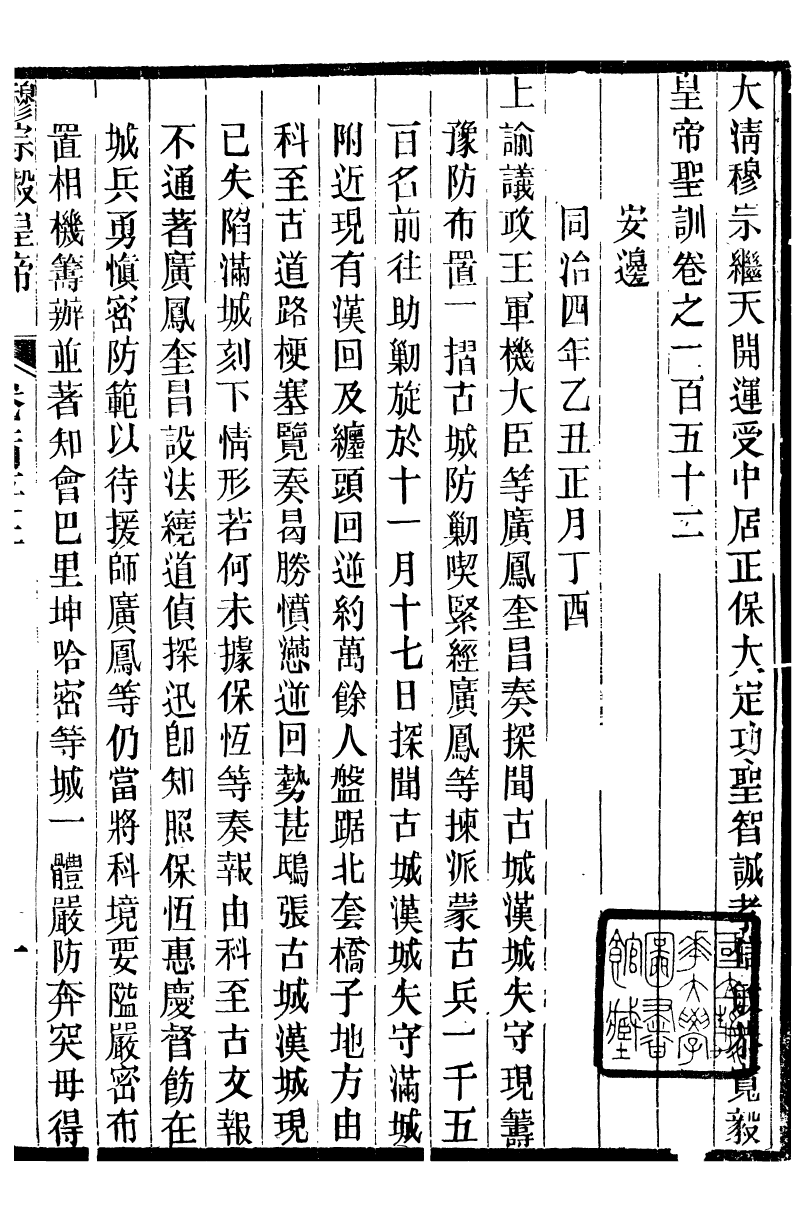 大清穆宗繼天開運受中居正保大定功聖智誠孝信敏恭寬毅
皇帝聖訓卷之一百五十二
安邊
同治四年乙丑正月丁酉
上諭議政王軍機大臣等廣鳳奎昌奏探聞古城漢城失守現籌
豫防布置一摺古城防勦喫緊經廣鳳等揀派蒙古兵一千五
百名前往助勦旋於十一月十七日探聞古城漢城失守滿城
附近現有漢回及纏頭回逆約萬餘人盤踞北套橋子地方由
科至古道路梗塞覽奏曷勝憤懣逆回勢甚鴟張古城漢城現
已失陷滿城刻下情形若何未據保恆等奏報由科至古文報
不通著廣鳳奎昌設法繞道偵探迅卽知照保恆惠慶督飭在
城兵勇愼密防範以待援師廣鳳等仍當將科境要隘嚴密布
置相機籌辦並著知會巴里坤哈密等城一體嚴防奔突毋得
穆宗毅皇帝 一
國立清華大學圖書館藏